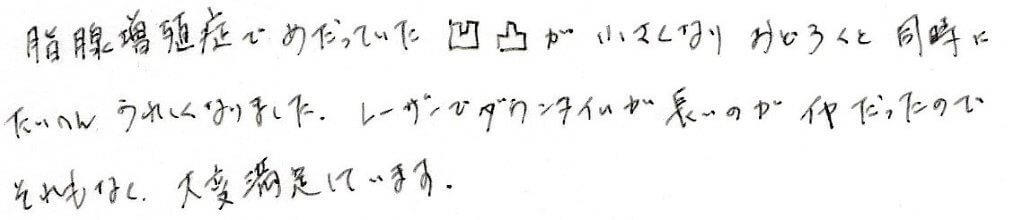 脂腺増殖症でめだっていた 凹凸が小さくなり おどろくと同時に
たいへん うれしくなりました. レーザーでダウンタイムが長いのがイヤだったので
それもなく. 大変満足しています.